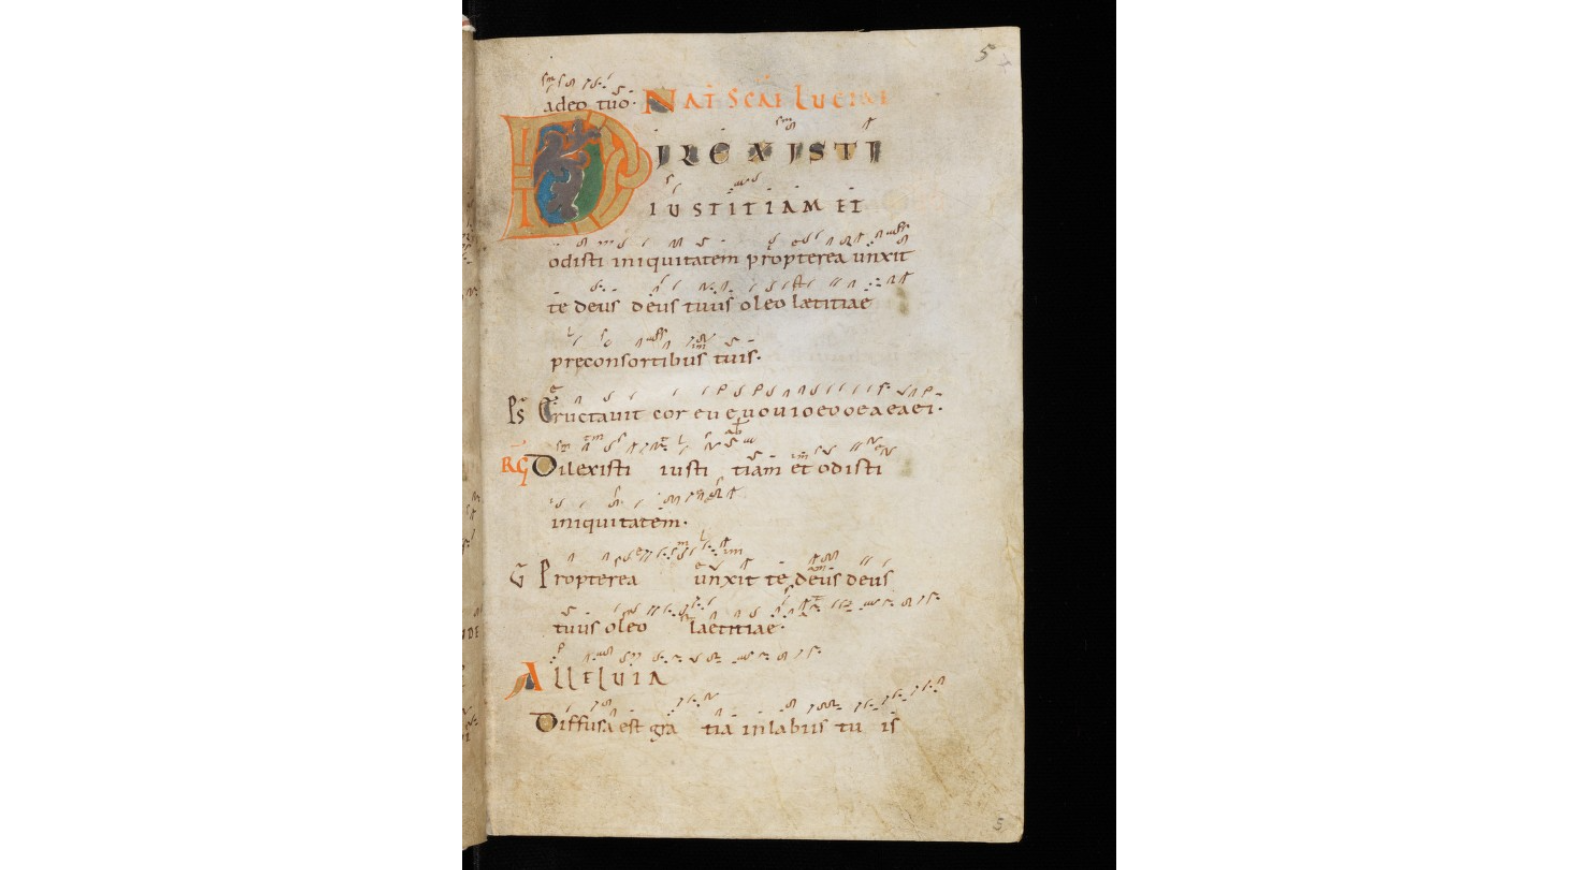 5
adeo tuo. NAT SCAE LUCIAE
DILEXISTI
IUSTITIAM ET
odisti iniquitatem propterea unxit
te deus deus tuus oleo laetitiae
preconsortibus tuis.
Ps Eructauit cor eu euouioeuo ea eaei.
RG Dilexisti iusti tiam et odisti
iniquitatem.
V Propterea unxit te deus deus
tuus oleo laetitiae.
Alleluia
Diffusa est gra tia inlabiis tu is
5